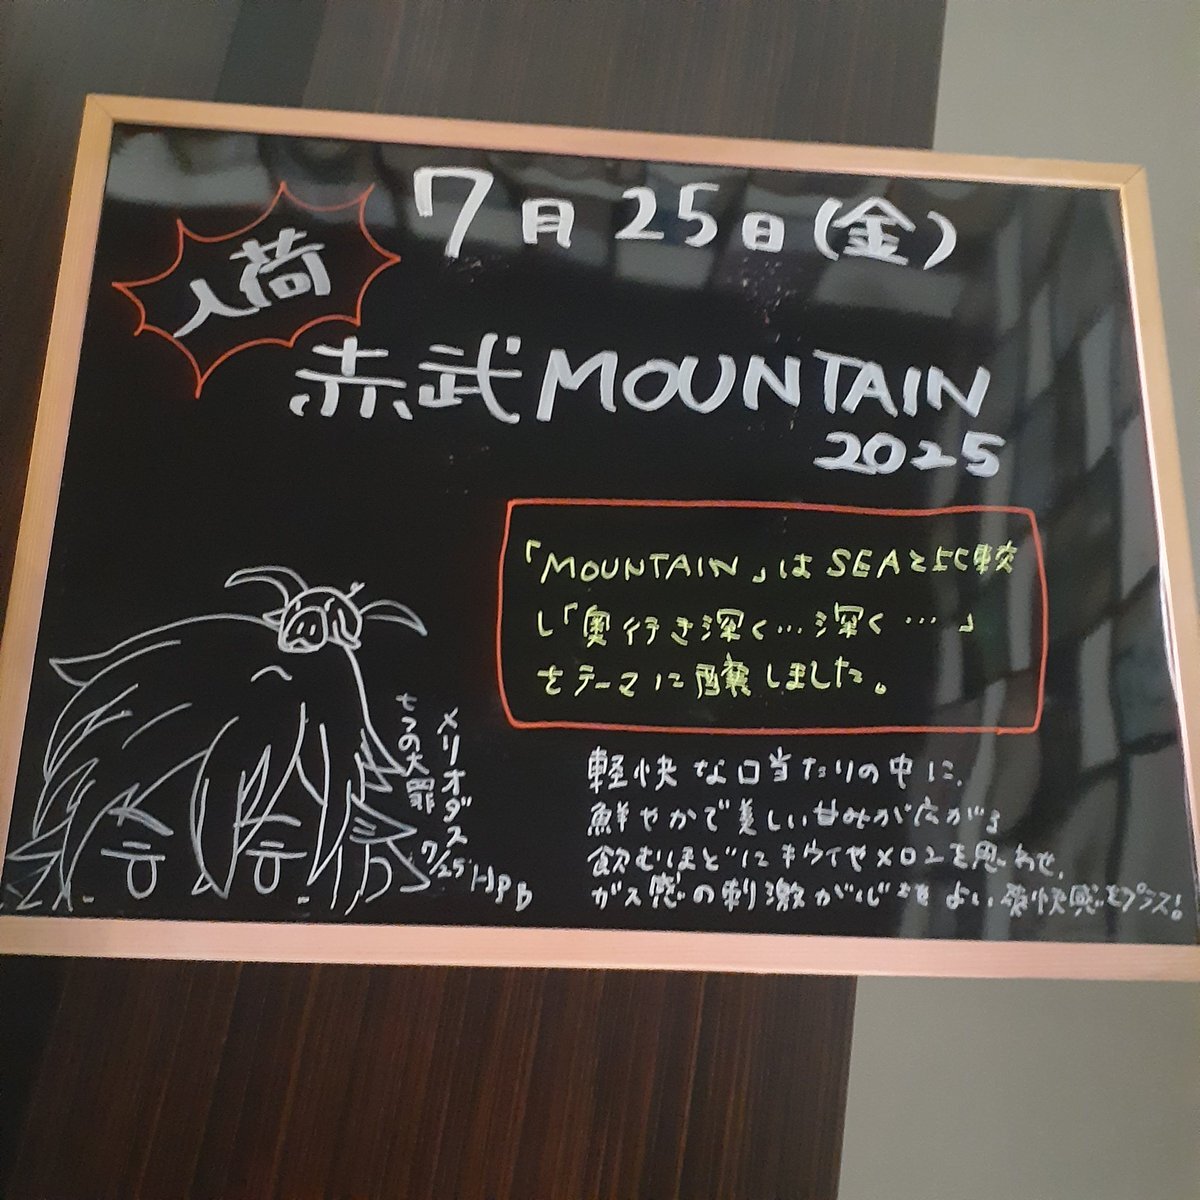 7月25日(金)
入荷
赤武MOUNTAIN
2025
「MOUNTAIN」はSEAと比較
し「奥行き深く…深く…」
をテーマに醸しました。
軽快な口当たりの中に、
鮮やかで美しい甘みが広がる
飲むほどにキウイやメロンを思わせ、
ガス感の刺激が心地よい爽快感をプラス!
メリオダス
七つの大罪
7/25 HPB